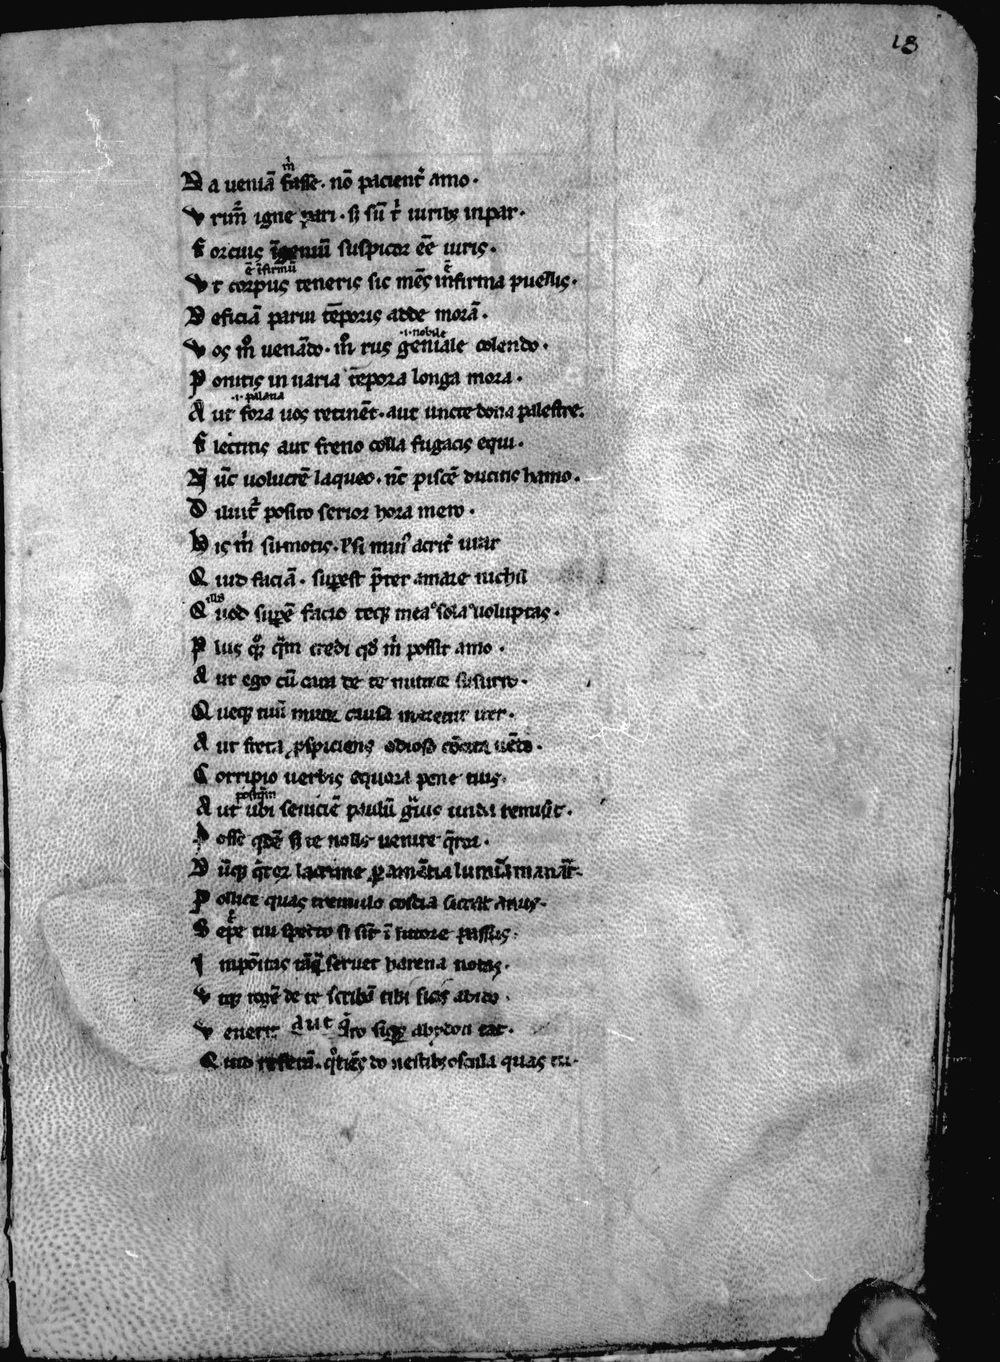 18
m̉
Da ueniā fasse. nō pacient̉ amo.
Vrim̉ igne pari. si sū t̉ uirib; inpar.
Forcius īgeniū suspicor eē uiris.
ē īfirmū ē
Vt corpus teneris sic mēs infirma puellis.
Deficiā parui tēporis adde morā.
.i. nobile
Vos mo uenādo. mo rus geniale colendo.
Ponitis in uaria tēpora longa mora.
.i. palacia
Aut fora uos retinēt. aut uncte dona palestre.
Flectitis aut freno colla fugacis equi.
Nūc uolucrē laqueo. nc̄ piscē ducitis hamo.
Diluit̉ posito serior hora mero.
His m̉ sumotis. ul si minus acrit̉ urar
Quid faciā. supest p̄ter amare nichil
illud
Quod supē facio teq; mea sola uoluptas.
Plus quoq; quam credi quod m̉ possit amo.
Aut ego cū cara de te nutrice susurro.
Queq; tuū miror causa moretur iter.
Aut freta pspiciens odioso cōcita uēto.
Corripio uerbis equora pene tuis.
postquam
Aut ubi seuiciē paulū grauis unda remisit.
Posse quidē si te nolle uenire queror.
Dūq; queror lacrime p amātia lumīa manāt.
Pollice quas tremulo conscia siccat anus.
Sepe tui specto si sīt ī litore passus.
Inpoītas tāq; seruet harena notas.
Vtq; rogē de te scribā tibi siquis abido.
Venerit aut quero siq; abydon eat.
Quid referā. quotiēs do uestib; oscula quas tu.